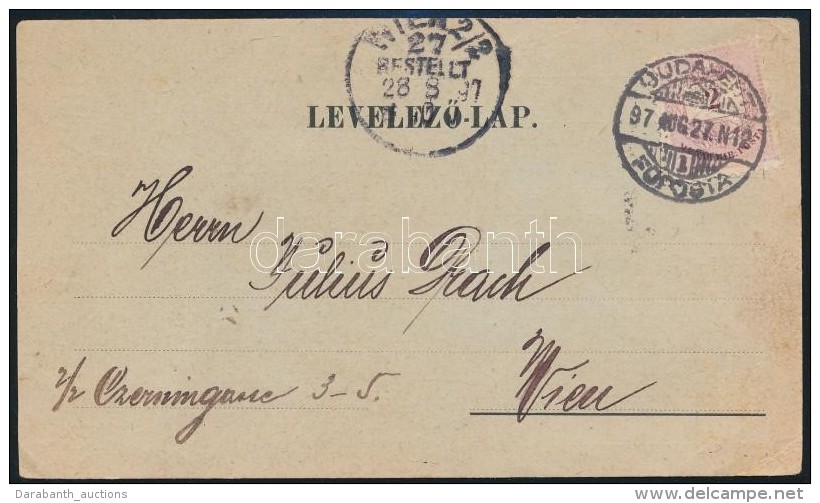 WIEN 2/2
27
BESTELLT
28 8 97
LEVELEZŐ-LAP.
BUDAPEST
2
97 AUG. 27. N12
FŐPOSTA
Herrn
Julius
Wien
2/2 Czerningasse 3-5.
darabanth
Darabanth_auctions
postzegels.delcampe.net